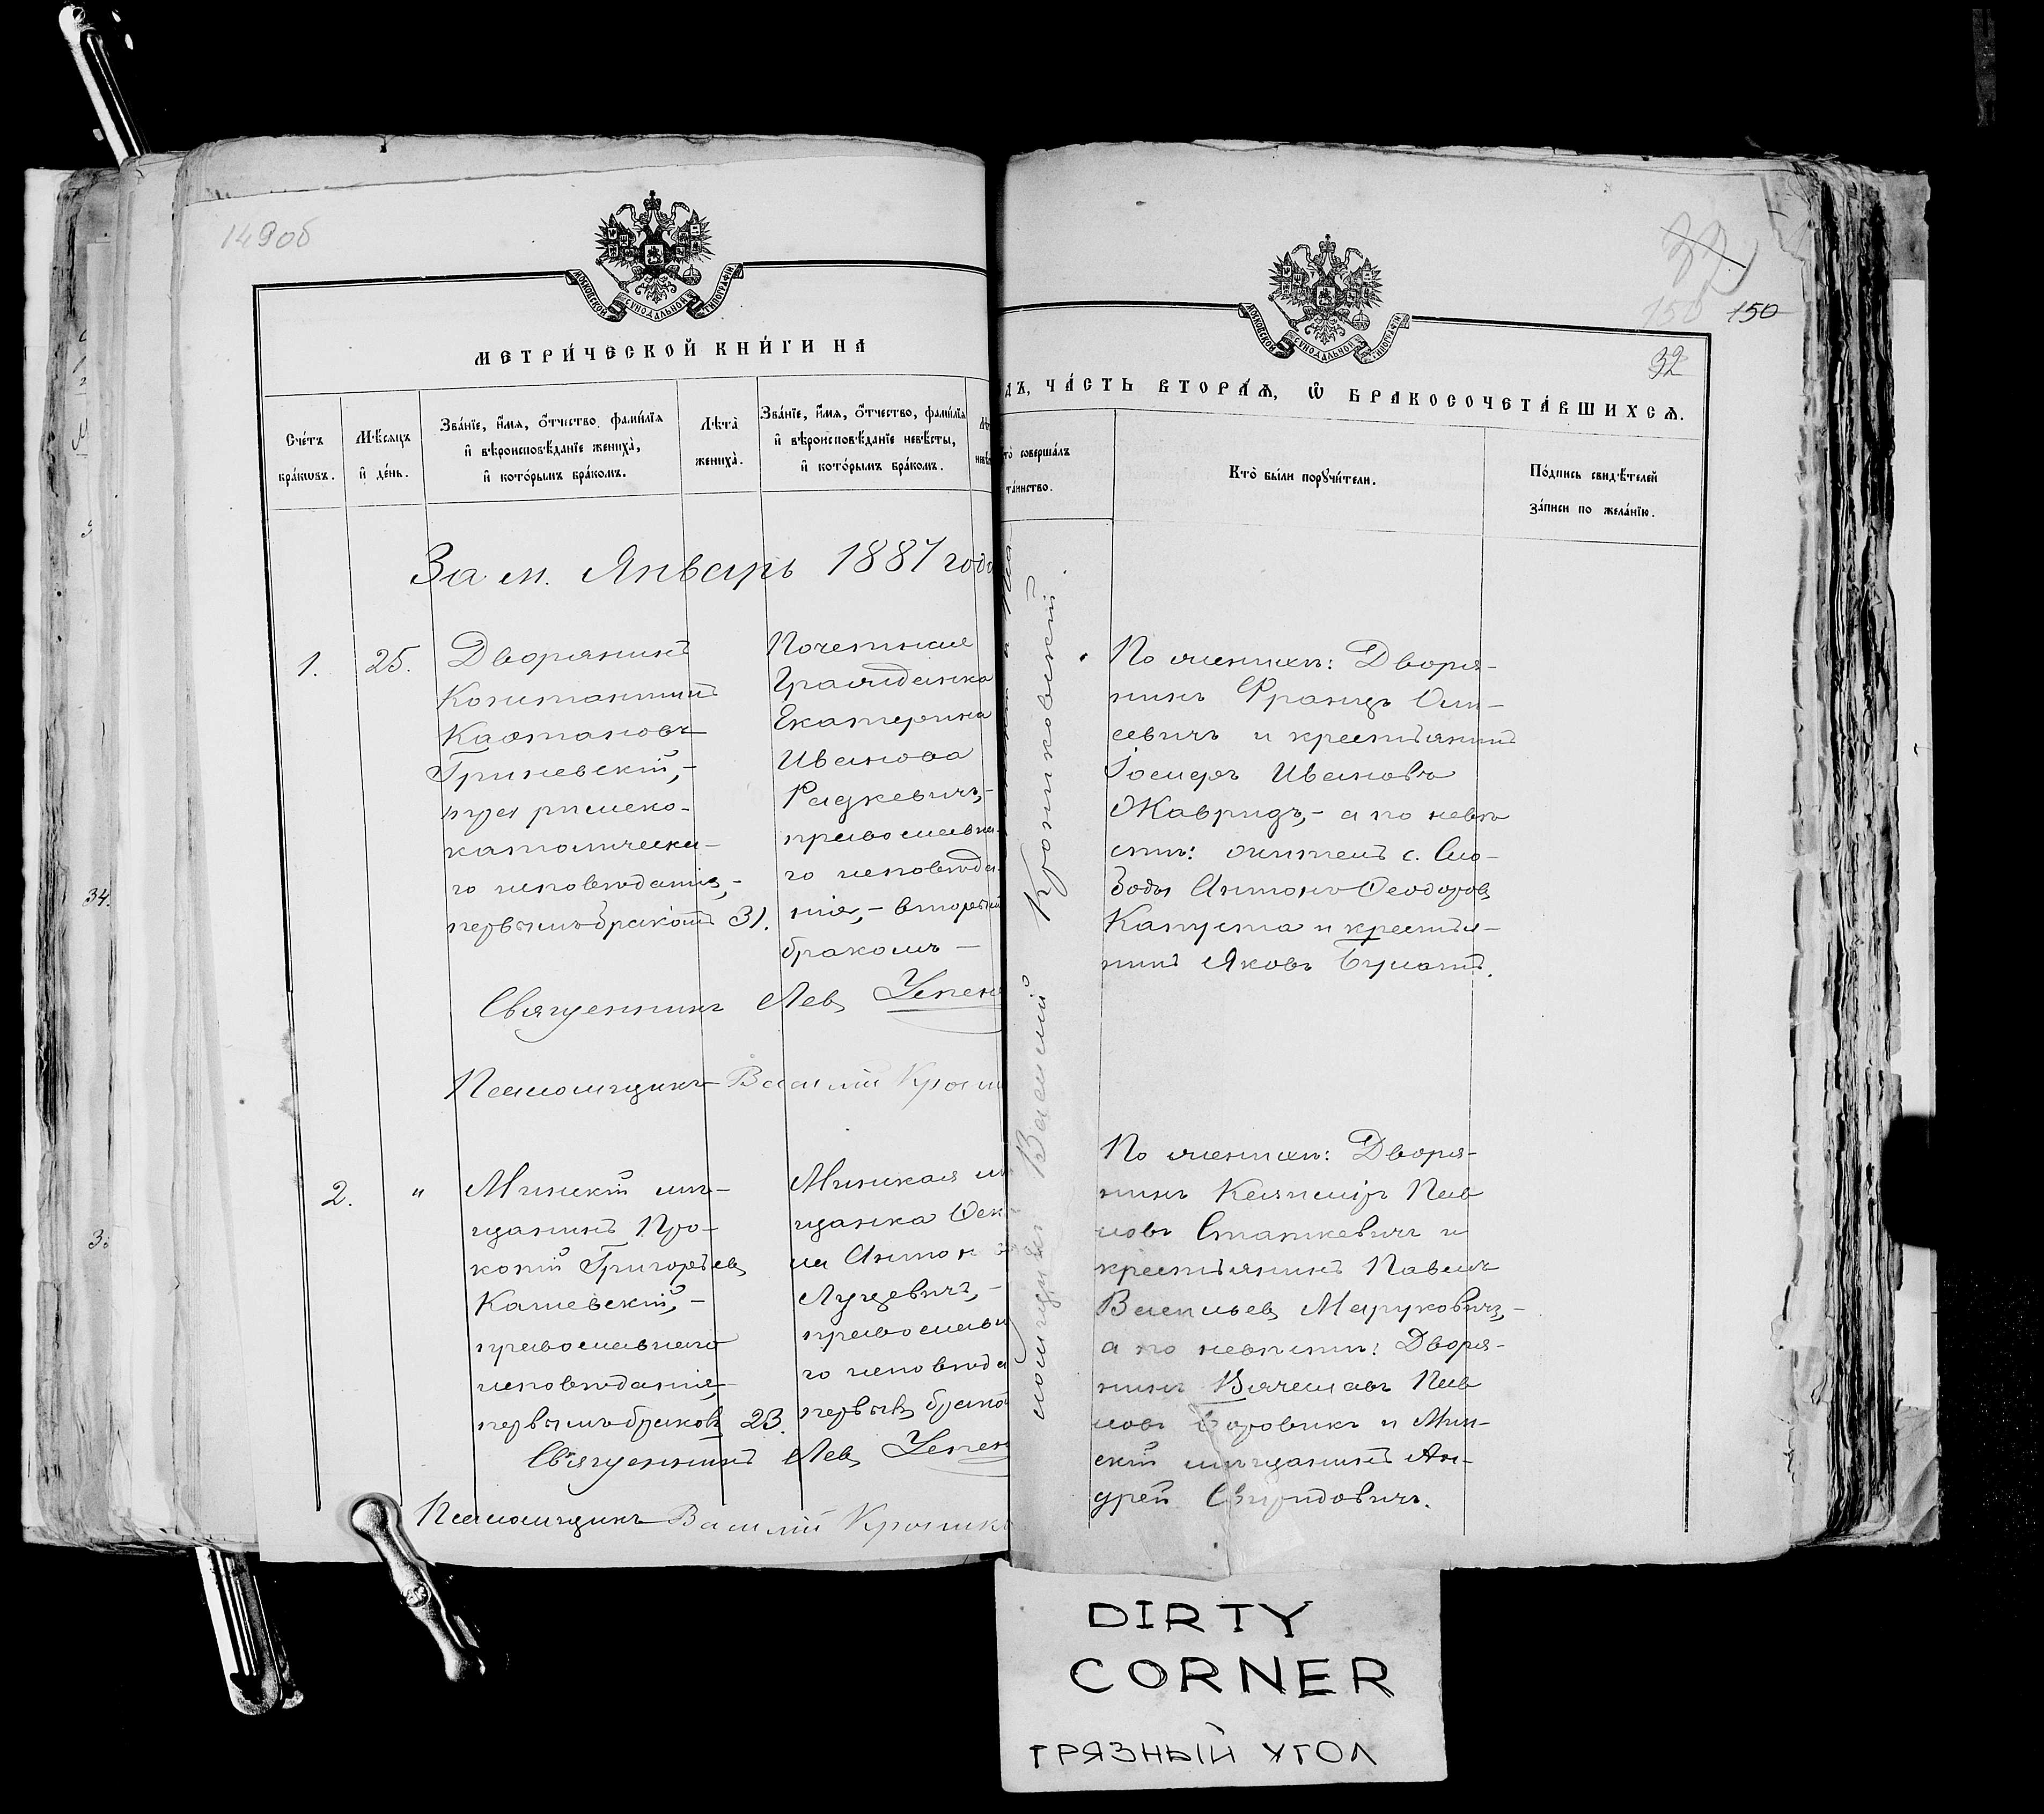 149об
МОСКОВСКОЙ СѴНОДАЛЬНОЙ ТИПОГРАФІИ
МЕТРИ́ЧЕСКОЙ КНИ́ГИ НА
Сче́тъ бра́кѡвъ.
Мѣ́сяцъ и҆ де́нь.
Зва́нїе, и҆́мя, ѻ҆́тчество, фами́лїя
и҆ вѣроисповѣ́данїе жениха̀,
и҆ кото́рымъ бра́комъ.
Лѣта̀ жениха̀.
Зва́нїе, и҆́мя, ѻ҆́тчество, фами́лїя
и҆ вѣроисповѣ́данїе невѣ́сты,
и҆ кото́рымъ бра́комъ.
За м. Январь 1887 года
1.
25.
Дворянинъ
Константинъ
Каэтановъ
Гриневскій,-
римско-
католическа-
го исповѣданія,-
первымъ бракомъ
31.
Почетная
Гражданка
Екатерина
Иванова
Радкевичъ,-
православна-
го исповѣда-
нія,- вторымъ
бракомъ-
Священникъ Левъ
Псаломщикъ Василій
2.
"
Минскій мѣ-
щанинъ Про-
копій Григорьевъ
Качевскій,-
православнаго
исповѣданія,
первымъ бракомъ
23.
Минская
щанка
Антон
Луцевичъ,-
православн
го исповѣда
первымъ брако
Священникъ Левъ
Псаломщикъ Василій
150
150
32
МОСКОВСКОЙ СѴНОДАЛЬНОЙ ТИПОГРАФІИ
ДЪ, ЧА́СТЬ ВТОРА́Ѧ, Ѡ҆ БРАКОСОЧЕТА́ВШИХСѦ.
то̀ соверша́лъ
та́инство.
Кто̀ бы́ли поручи́тели.
По́дпись свидѣ́телей
за́писи по жела́нїю.
Василій
По женихѣ: Дворя-
нинъ Францъ Оси-
еевичъ и крестьянинъ
Іосифъ Ивановъ
Жавридъ,- а по невѣ
стѣ: житель с. Сло-
боды Антонъ Ѳеодоровъ
Капуста и крестья-
нинъ Яковъ
По женихѣ: Дворя-
нинъ Казиміръ Пав
ловъ Станкевичъ и
крестьянинъ Павелъ
Васильевъ Маруковичъ,-
а по невѣстѣ: Дворя-
нинъ Вячеславъ Пав
ловъ Боровикъ и Мин-
скій мѣщанинъ Ан-
дрей Свиридовичъ.
DIRTY
CORNER
ГРЯЗНЫЙ УГОЛ